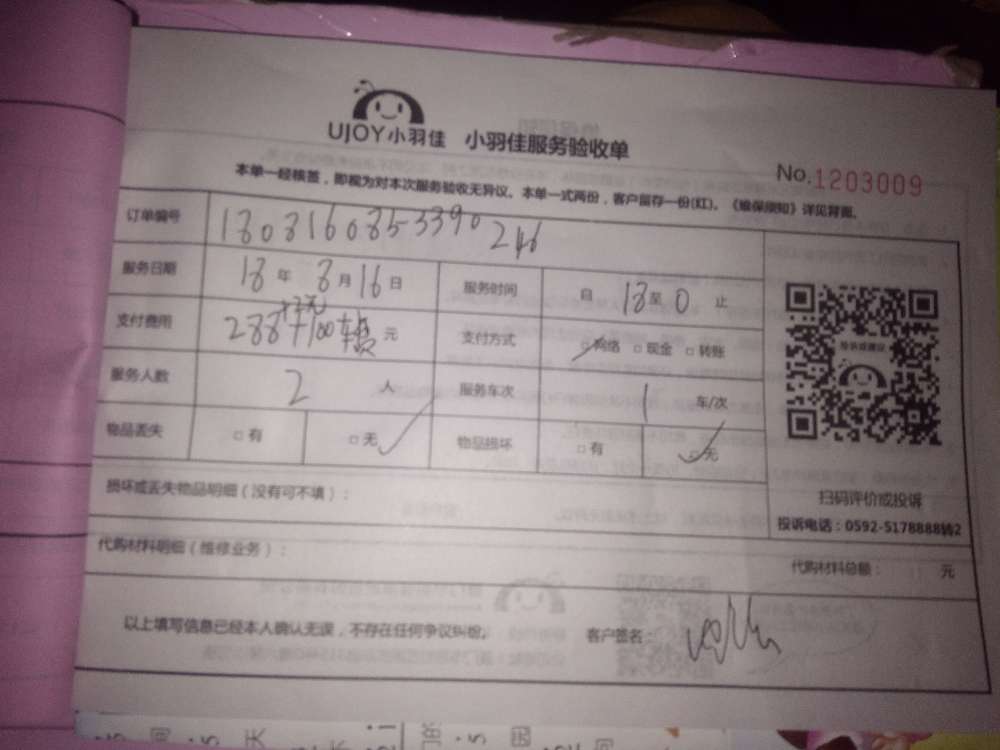 UJOY小羽佳 小羽佳服务验收单
No.1203009
本单一经核签，即视为对本次服务验收无异议。本单一式两份，客户留存一份(红)。《维保须知》详见背面。
订单编号 1808160853390246
服务日期 18年8月16日 服务时间 自18至0止
支付费用 288+100车费元 支付方式 □网络 □现金 □转账
服务人数 2人 服务车次 1车/次
物品丢失 □有 □无 物品损坏 □有 □无
扫码评价或投诉
投诉电话：0592-5178888转2
损坏或丢失物品明细（没有可不填）：
代购材料明细（维修业务）： 代购材料总额： 元
以上填写信息已经本人确认无误，不存在任何争议纠纷。 客户签名：